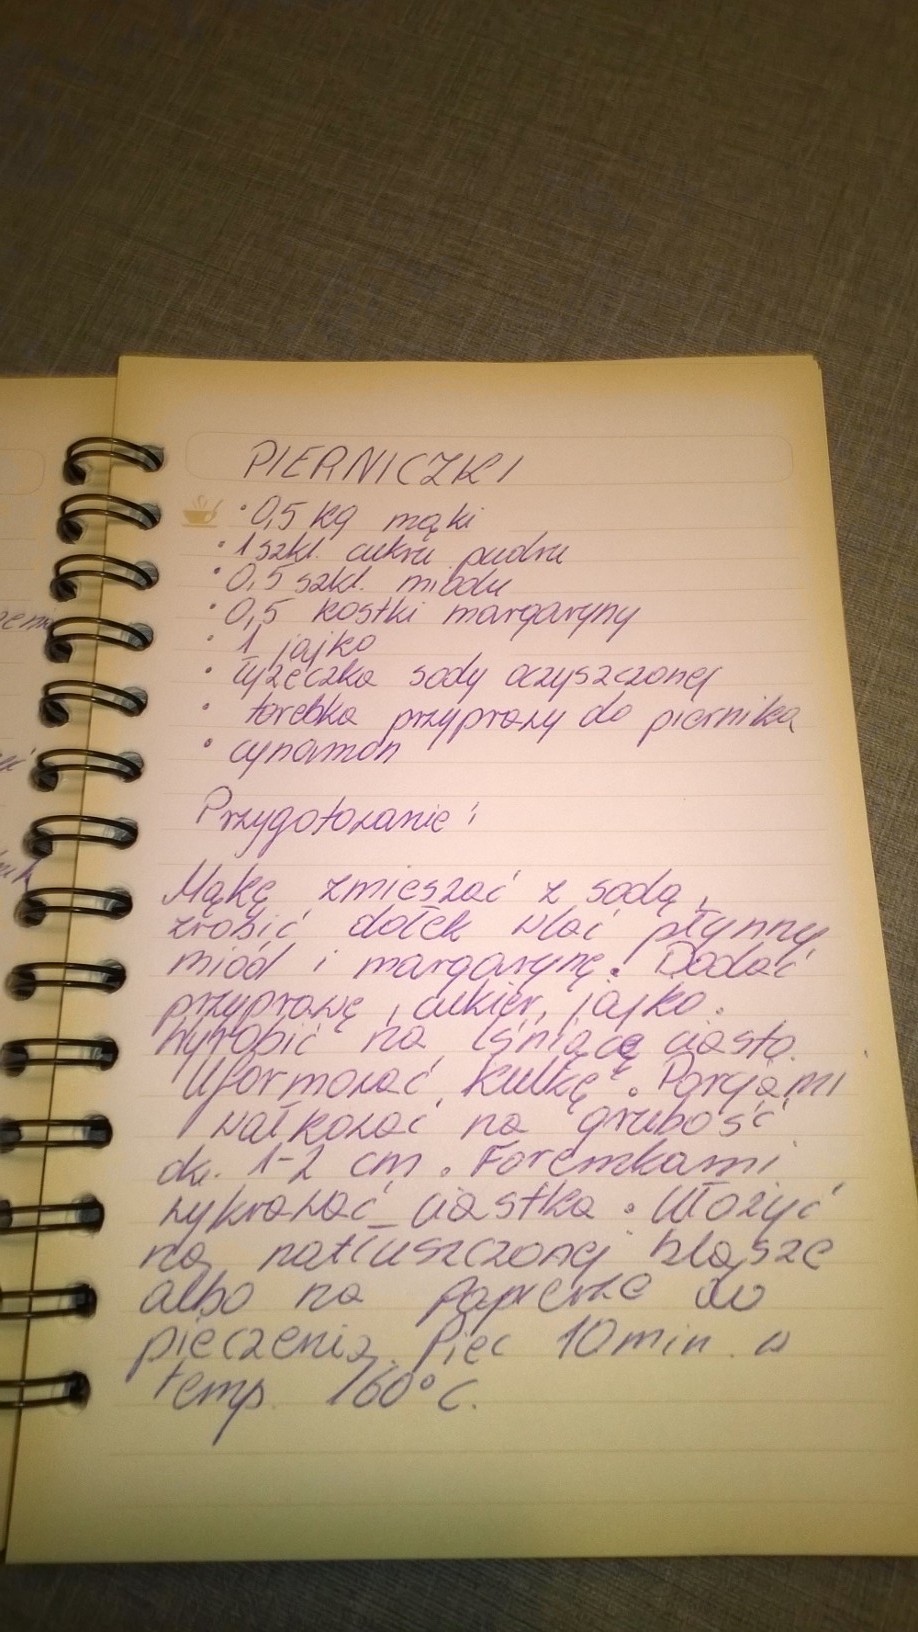 PIERNICZKI
• 0,5 kg mąki
• 1 szkl. cukru pudru
• 0,5 szkl. miodu
• 0,5 kostki margaryny
• 1 jajko
• łyżeczka sody oczyszczonej
• torebka przyprawy do piernika
• cynamon
Przygotowanie:
Mąkę zmieszać z sodą,
zrobić dołek wlać płynny
miód i margarynę. Dodać
przyprawę, cukier, jajko.
Wyrobić na lśniącą ciasto.
Uformować kulkę. Porcjami
wałkować na grubość
ok. 1-2 cm. Foremkami
wykrawać ciastka. Włożyć
na natłuszczonej blasze
albo na papierze do
pieczenia. Piec 10 min. w
temp. 160°C.